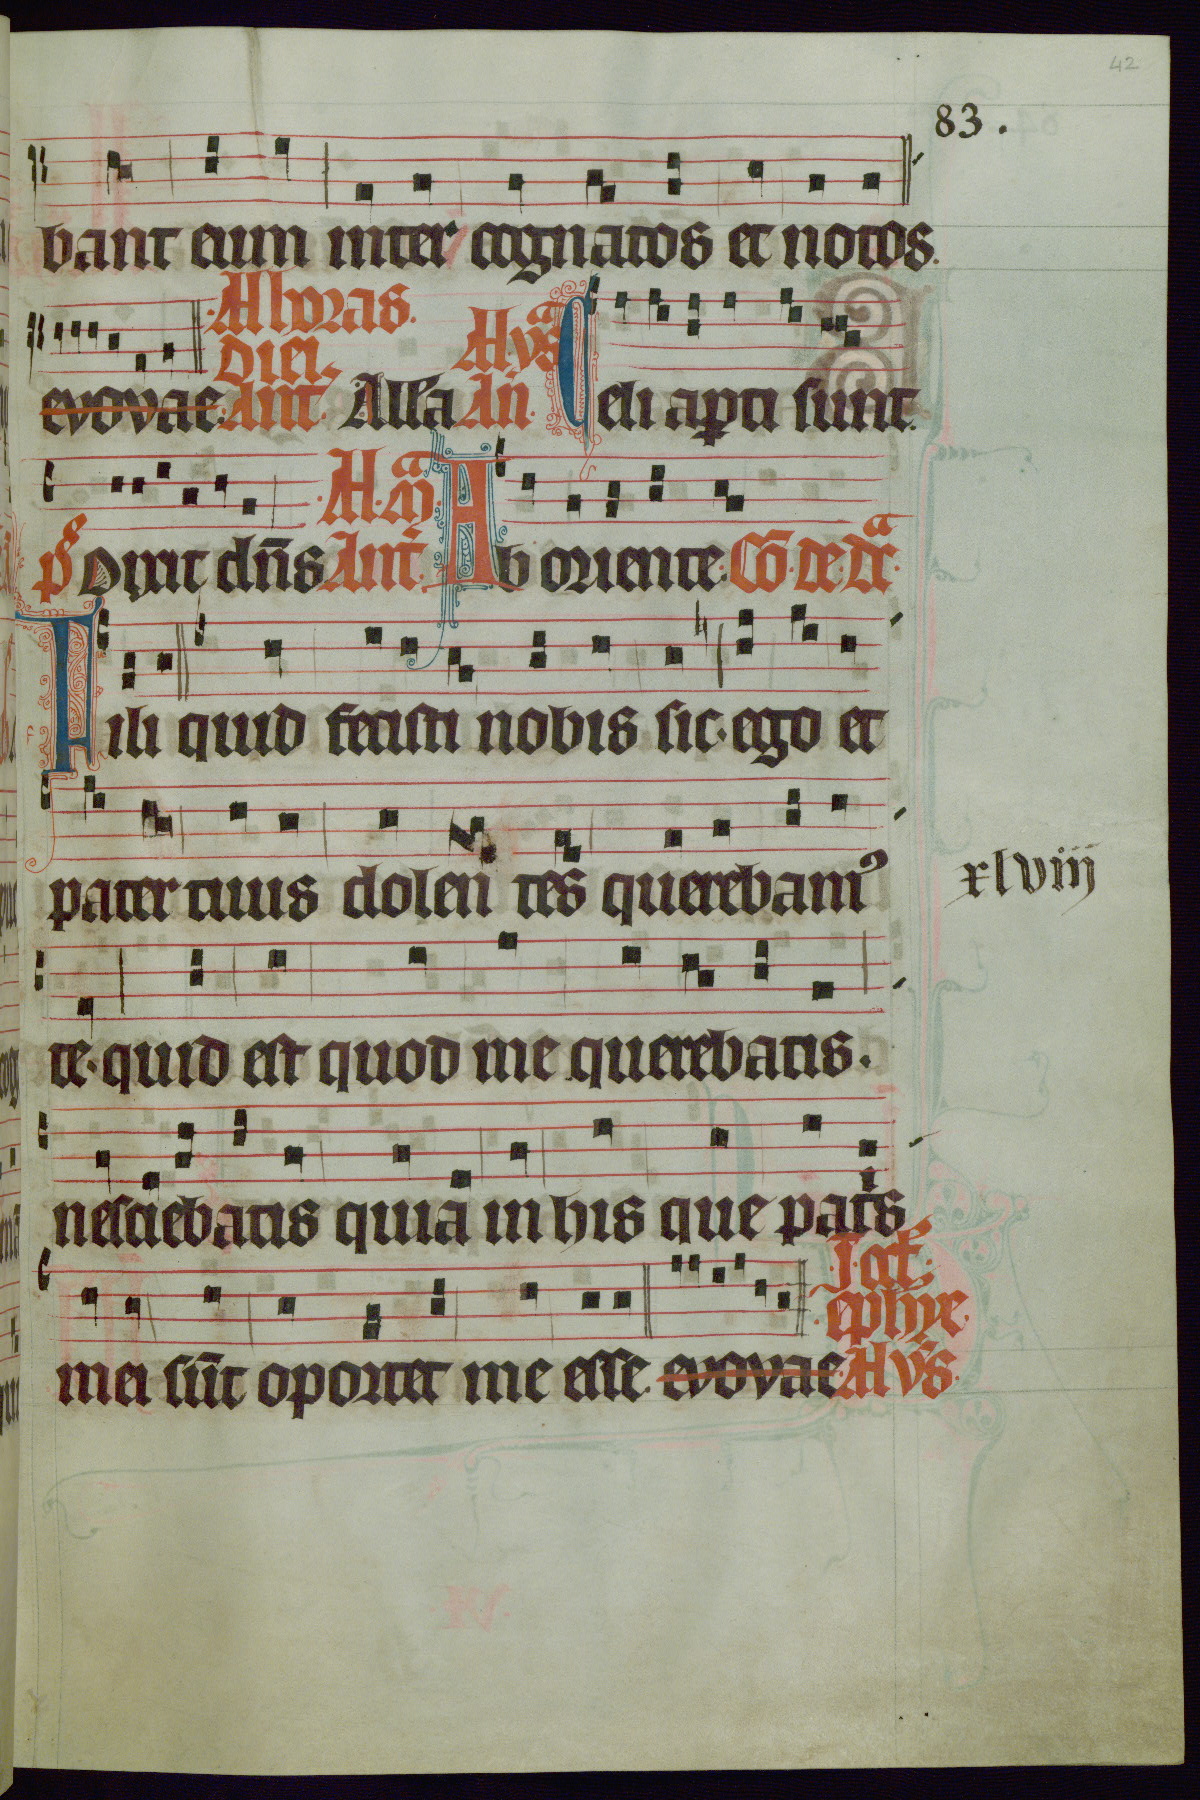 42
83.
bant eum inter cognatos et notos.
Ad horas
diei.
Ad vs̄a
evovae. Ant. Allā An̄. Celi aperti sunt.
Ad m̄a
ps̄ Dixit dn̄s Ant̄. Ab oriente. Cō. de d̄ca
Fili quid fecisti nobis sic. ego et
pater tuus dolentes querebam᷒
xlviij
te. quid est quod me querebatis.
nesciebatis quia in his que patis
mei sūt oportet me esse. evovae
I oct̄.
ephye.
Ad vs̄.